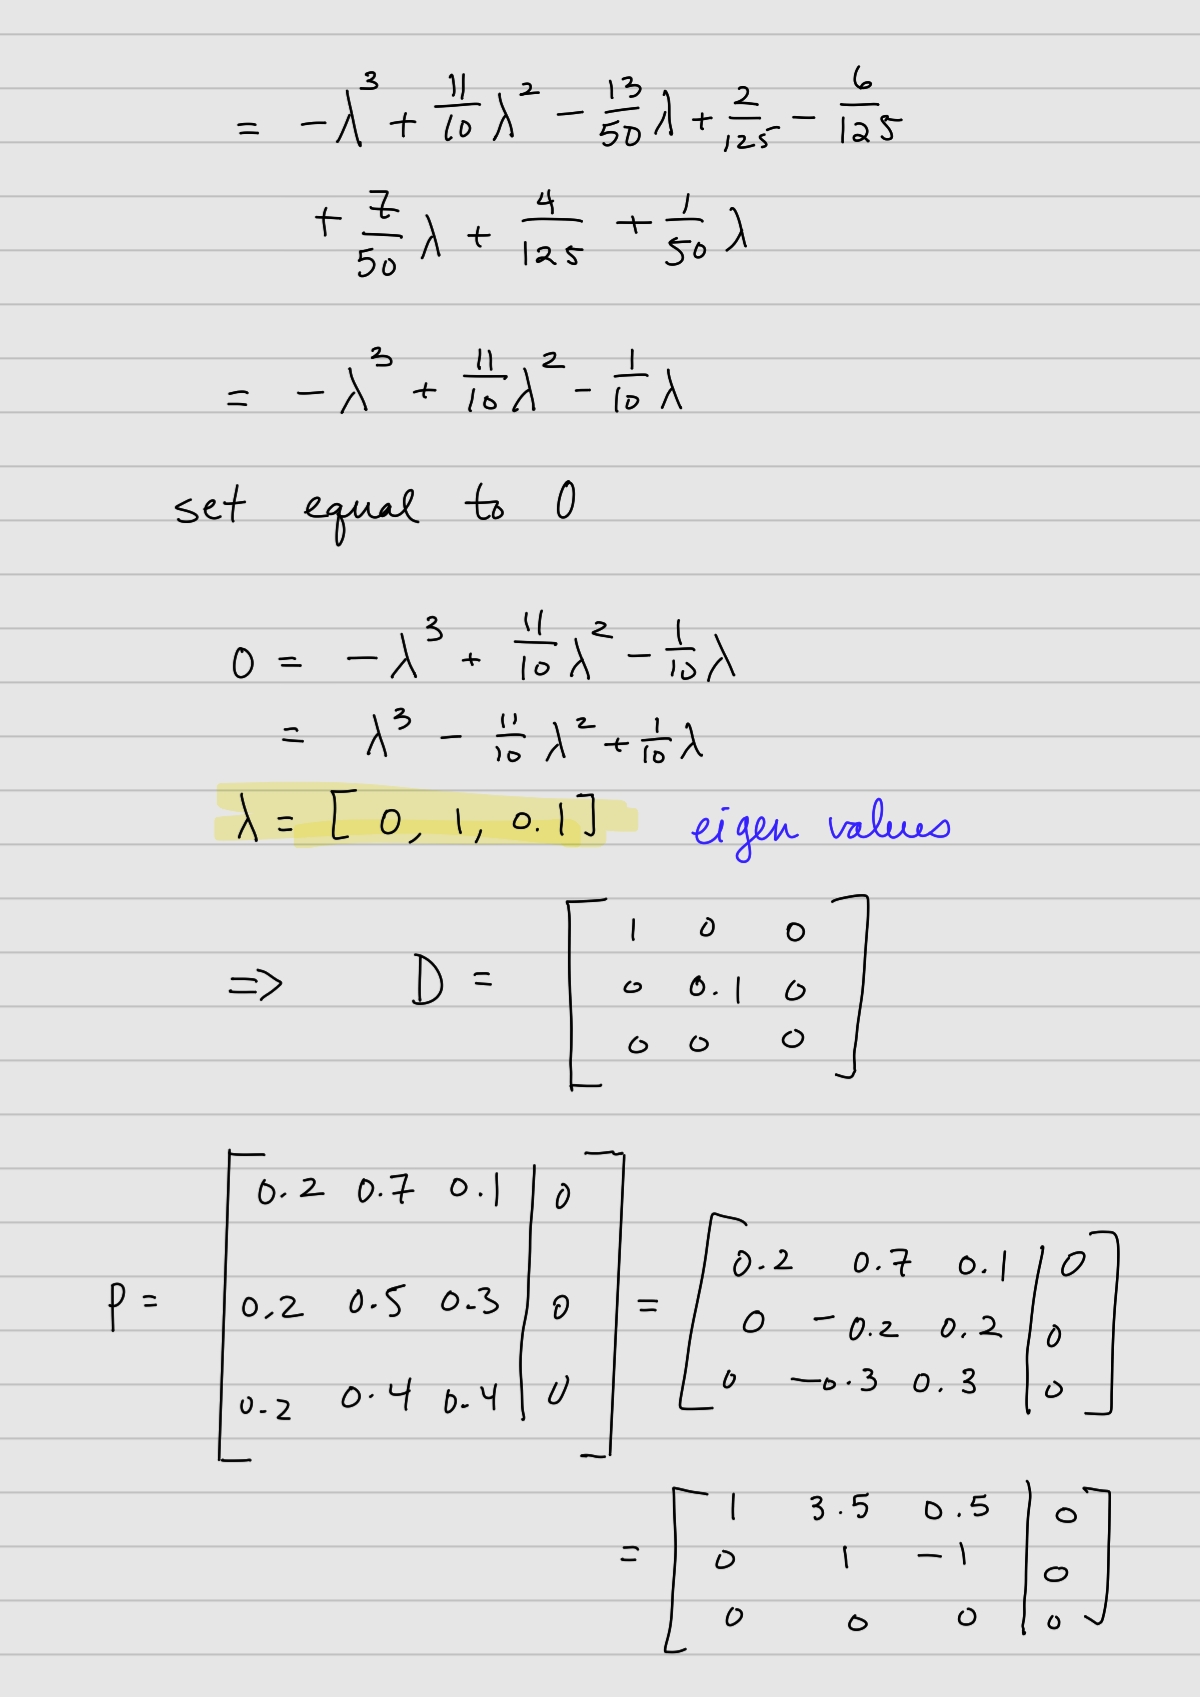 = -λ³ + 11/10 λ² - 13/50 λ + 2/125 - 6/125
+ 7/50 λ + 4/125 + 1/50 λ
= -λ³ + 11/10 λ² - 1/10 λ
set equal to 0
0 = -λ³ + 11/10 λ² - 1/10 λ
= λ³ - 11/10 λ² + 1/10 λ
λ = [ 0, 1, 0.1 ] eigen values
=> D = [ 1 0 0
0 0.1 0
0 0 0 ]
P = [ 0.2 0.7 0.1 | 0
0.2 0.5 0.3 | 0
0.2 0.4 0.4 | 0 ]
= [ 0.2 0.7 0.1 | 0
0 -0.2 0.2 | 0
0 -0.3 0.3 | 0 ]
= [ 1 3.5 0.5 | 0
0 1 -1 | 0
0 0 0 | 0 ]